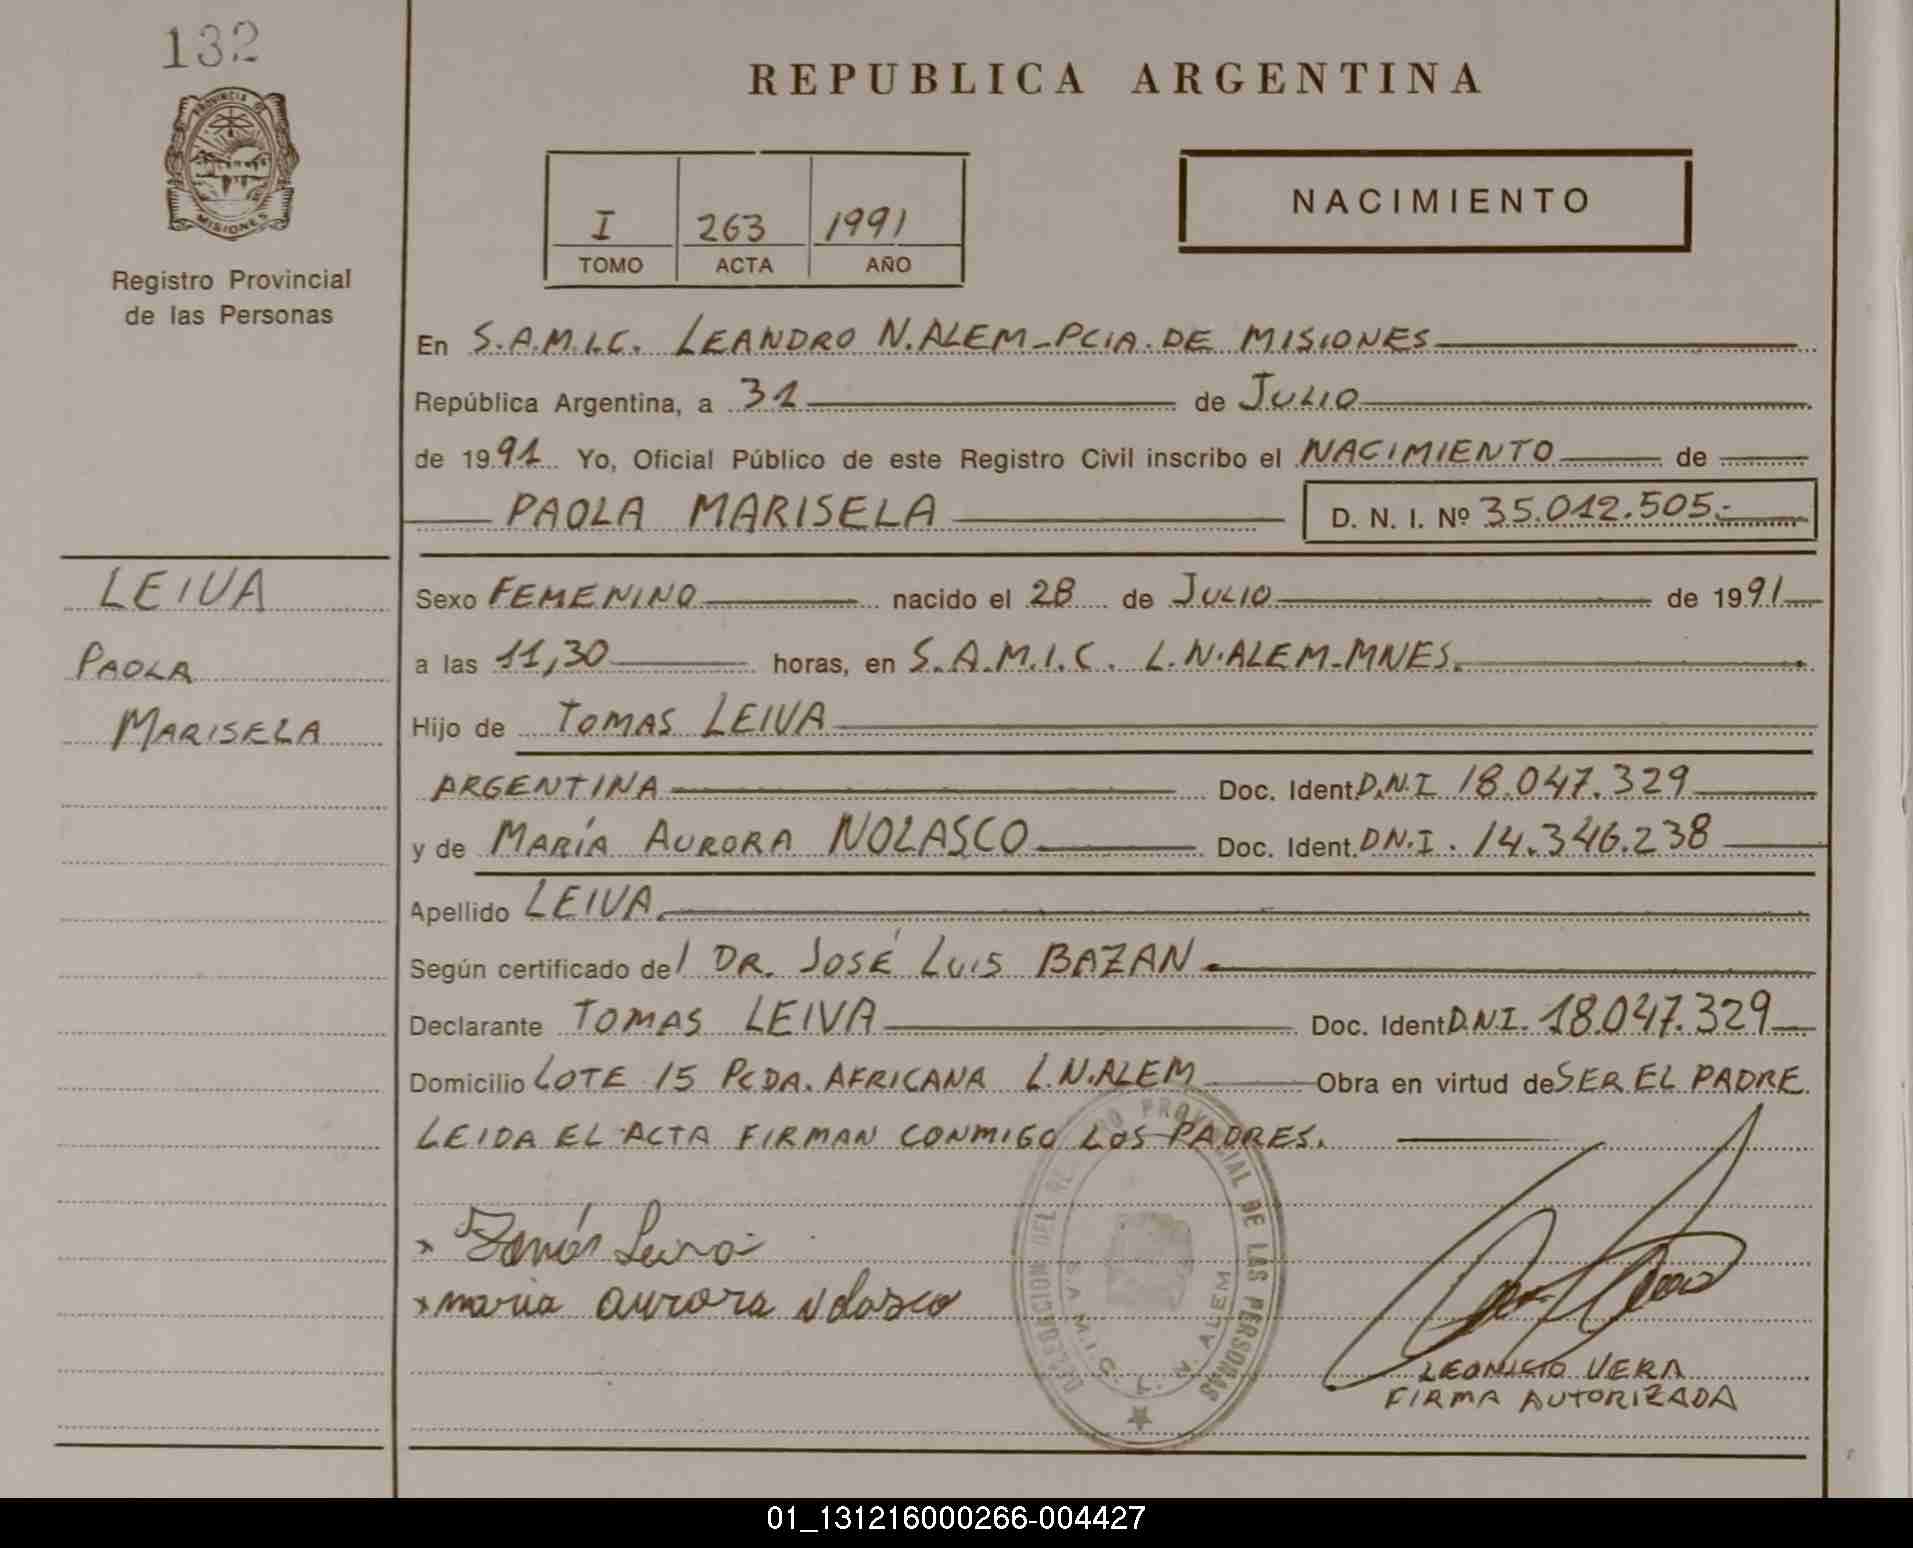 132
PROVINCIA DE
MISIONES
Registro Provincial
de las Personas
LEIVA
PAOLA
MARISELA
REPUBLICA ARGENTINA
I 263 1991
TOMO ACTA AÑO
NACIMIENTO
En S.A.M.I.C. LEANDRO N. ALEM - PCIA. DE MISIONES
República Argentina, a 31 de JULIO
de 1991 Yo, Oficial Público de este Registro Civil inscribo el NACIMIENTO de
PAOLA MARISELA D. N. I. Nº 35.012.505.-
Sexo FEMENINO nacido el 28 de JULIO de 1991
a las 11,30 horas, en S.A.M.I.C. L.N.ALEM-MNES.
Hijo de TOMAS LEIVA
ARGENTINA Doc. Ident. D.N.I 18.047.329
y de MARÍA AURORA NOLASCO Doc. Ident. D.N.I. 14.346.238
Apellido LEIVA.
Según certificado del DR. JOSÉ LUIS BAZAN
Declarante TOMAS LEIVA Doc. Ident D.N.I. 18.047.329
Domicilio LOTE 15 PCDA. AFRICANA L.N.ALEM Obra en virtud de SER EL PADRE.
LEIDA EL ACTA FIRMAN CONMIGO LOS PADRES.
x Tomás Leiva
x maria aurora Nolasco
DELEGACION DEL REGISTRO PROVINCIAL DE LAS PERSONAS
S.A.M.I.C. L. N. ALEM
LEONICIO VERA
FIRMA AUTORIZADA
01_131216000266-004427